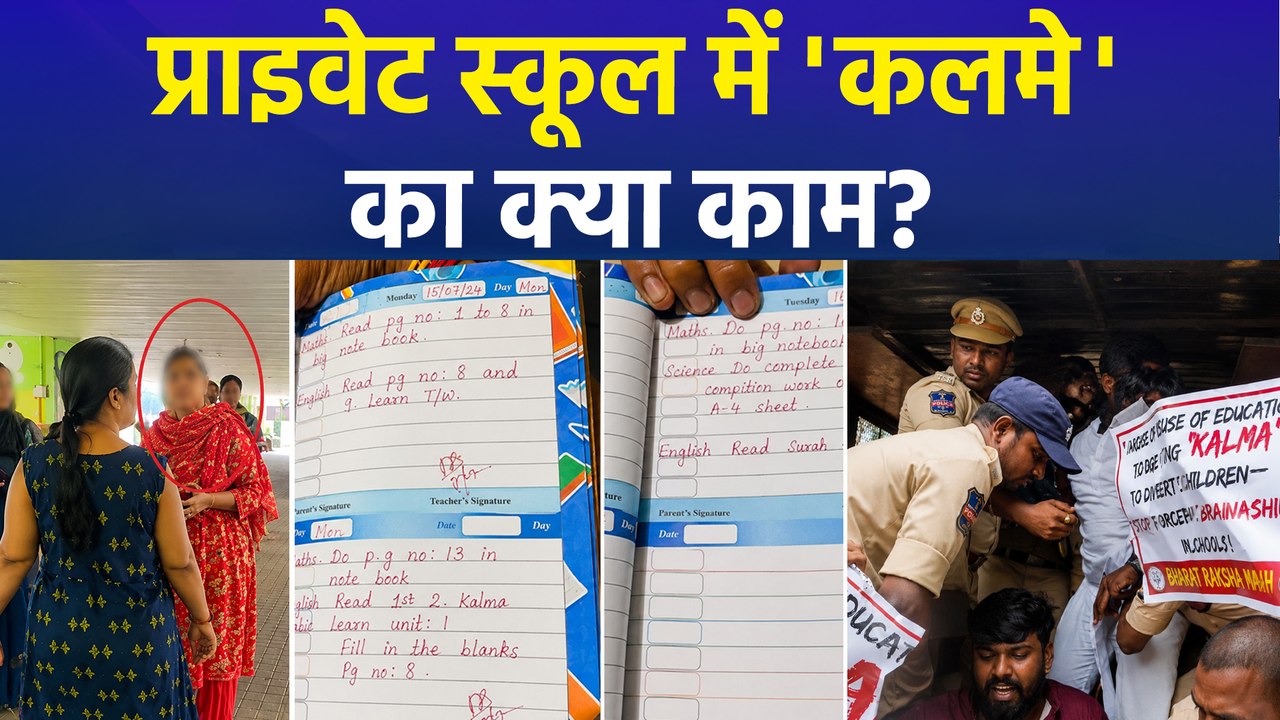 प्राइवेट स्कूल में 'कलमे'
का क्या काम?
Monday 15/07/24 Day Mon
Maths. Read pg no: 1 to 8 in
big note book.
English Read pg no: 8 and
9. Learn T/w.
Parent's Signature Teacher's Signature
Day Mon Date Day
Maths. Do p.g no: 13 in
note book
English Read 1st 2. Kalma
Learn unit: 1
Fill in the blanks
Pg no: 8.
Tuesday
Maths. Do pg. no:
in big notebook
Science Do complete
compition work
A-4 sheet.
English Read Surah
Parent's Signature
Date
POLICE
USE OF EDUCATIO
"KALMA"
CHILDREN—
IN SCHOOLS!
BHARAT RAKSHA
EDUCAT